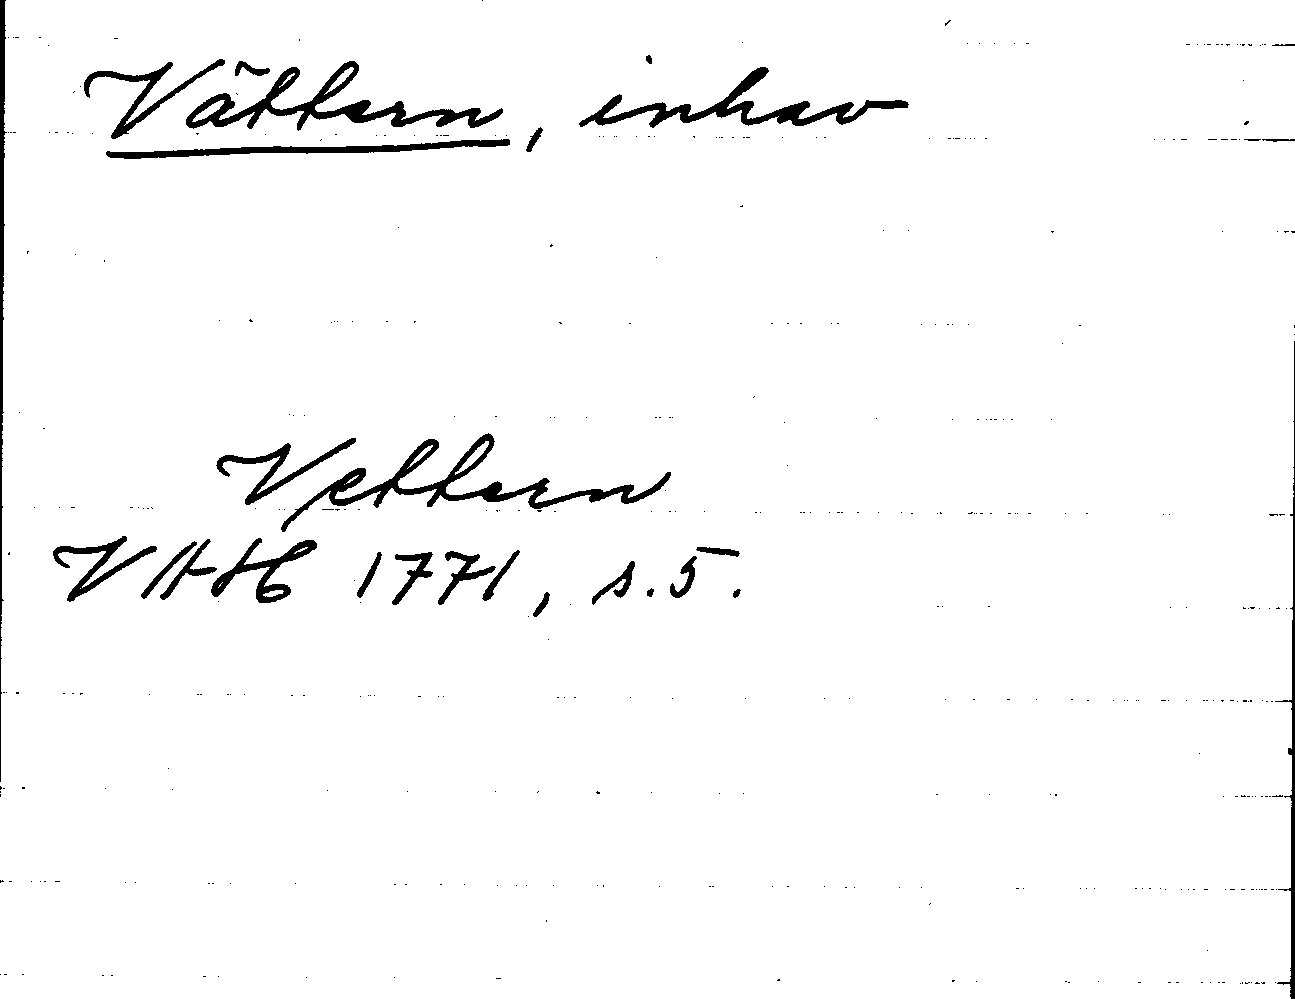 Vättern, inhav
Vettern
VAH 1771, s. 5.